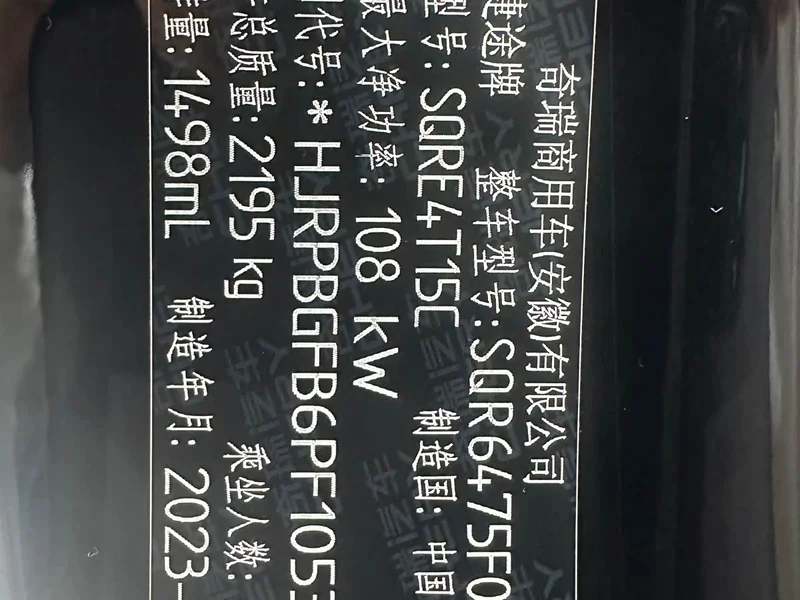 奇瑞商用车(安徽)有限公司
捷途牌 整车型号:SQR6475F0
型号:SQRE4T15C 制造国:中国
最大净功率:108 kW
代号:*HJRPBGFB6PF1053
总质量:2195 kg 乘坐人数:
量:1498mL 制造年月:2023-